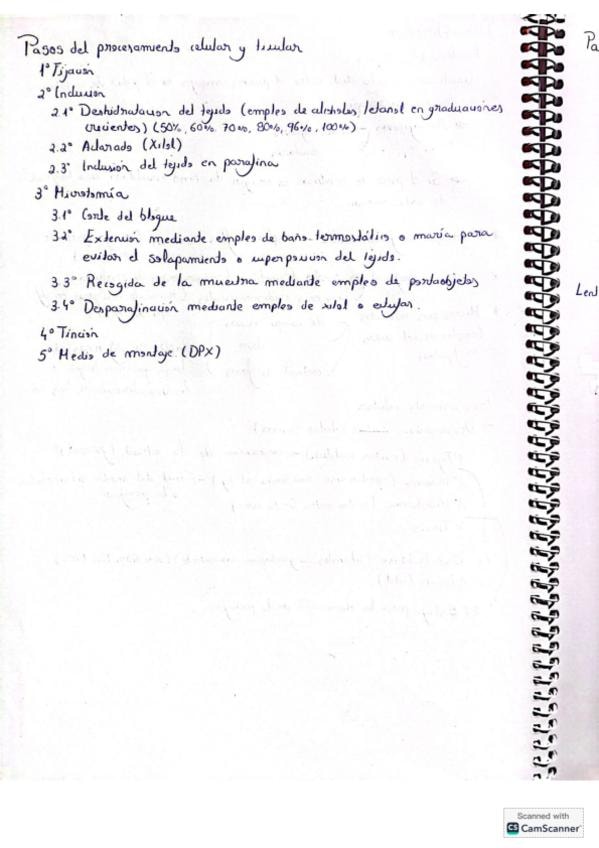 Pasos del procesamiento celular y tisular
1º Fijación
2º Inclusión
2.1º Deshidratación del tejido (empleo de alcoholes/etanol en graduaciones
crecientes) (50%, 60% 70%, 80%, 96%, 100%) -
2.2º Aclarado (Xilol)
2.3º Inclusión del tejido en parafina
3º Microtomía
3.1º Corte del bloque
3.2º Extensión mediante empleo de baño termostático o maría para
evitar el solapamiento o superposición del tejido.
3.3º Recogida de la muestra mediante empleo de portaobjetos
3.4º Desparafinación mediante empleo de xilol o estufas.
4º Tinción
5º Medio de montaje (DPX)
Pa
Lent
Scanned with
CS CamScanner